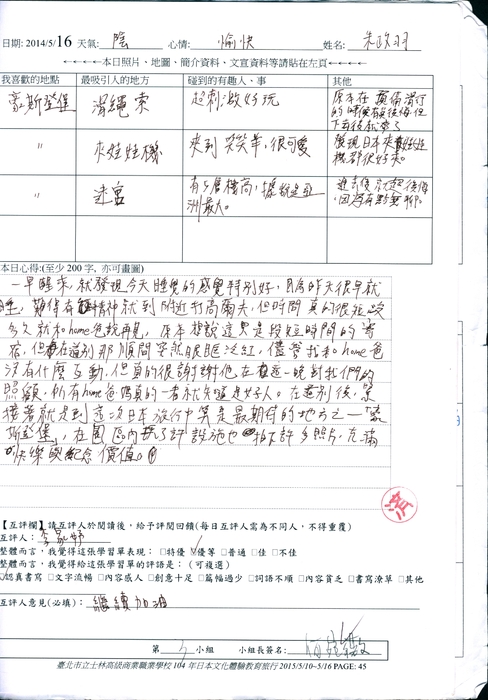 日期: 2014/5/16 天氣: 陰 心情: 愉快 姓名: 朱政羽
本日照片、地圖、簡介資料、文宣資料等請貼在左頁
我喜歡的地點 最吸引人的地方 碰到的有趣人、事 其他
豪斯登堡 滑繩索 超刺激好玩 原本在預備滑行的時候有點後悔但下去後就
〃 夾娃娃機 夾到笑笑羊,很可愛 發現日本夾娃娃機都很好夾。
〃 迷宮 有5層樓高,據說是亞洲最大。 進去後就超後悔,因為有點無聊。
本日心得:(至少 200 字, 亦可畫圖)
一早醒來,就發現今天睡覺的感覺特別好,因為昨天很早就
睡,難得有精神就到附近打高爾夫,但時間真的很短沒
多久就和home爸說再見,原本想說這只是段短時間的寄
宿,但在道別那瞬間突然眼眶泛紅,儘管我和home爸
沒有什麼互動,但真的很謝謝他在這一晚對我們的
照顧,所有home爸媽真的一看就知道是好人。在道別後,緊
接著就是到這次日本旅行中算是最期待的地方之一"豪
斯登堡",在園區內玩了許設施也拍下許多照片,充滿
快樂與紀念價值。
【互評欄】請互評人於閱讀後,給予評閱回饋(每日互評人需為不同人,不得重覆)
互評人:
整體而言,我覺得這張學習單表現:□特優 □優等 □普通 □佳 □不佳
整體而言,我覺得給這張學習單的評語是:(可複選)
□認真書寫 □文字流暢 □內容感人 □創意十足 □篇幅過少 □詞語不順 □內容貧乏 □書寫潦草 □其他
互評人意見(必填): 繼續加油
第 小組 小組長簽名:
臺北市立士林高級商業職業學校 104 年日本文化體驗教育旅行 2015/5/10~5/16 PAGE: 45